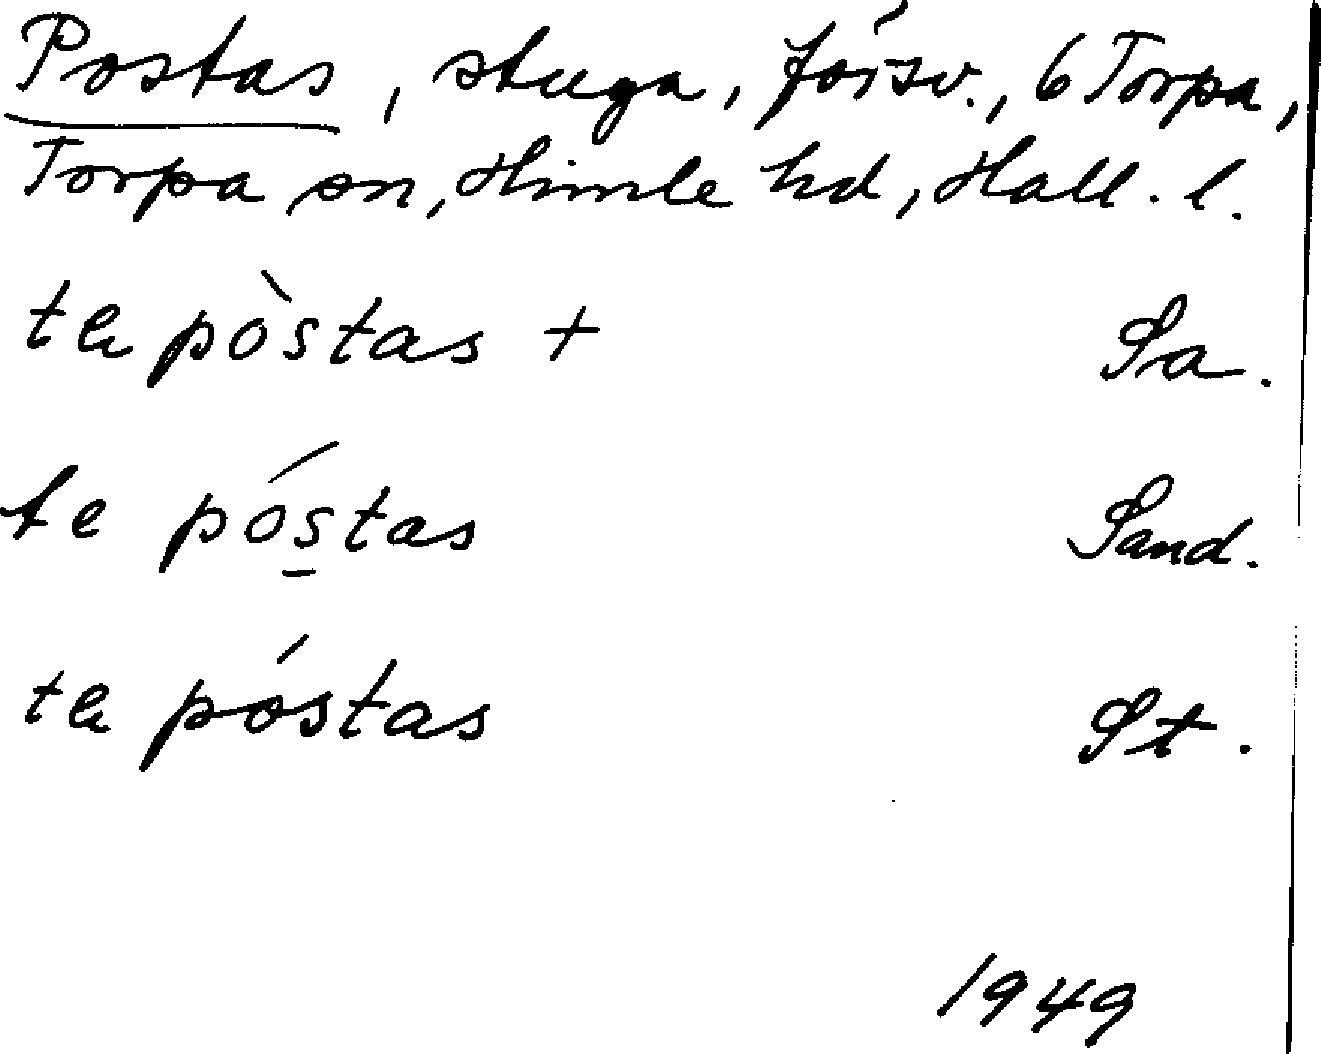 Postas, stuga, försv., 6 Torpa,
Torpa sn, Himle hd, Hall. l.
te pòstas + Sa.
te póstas Sand.
te póstas St.
1949